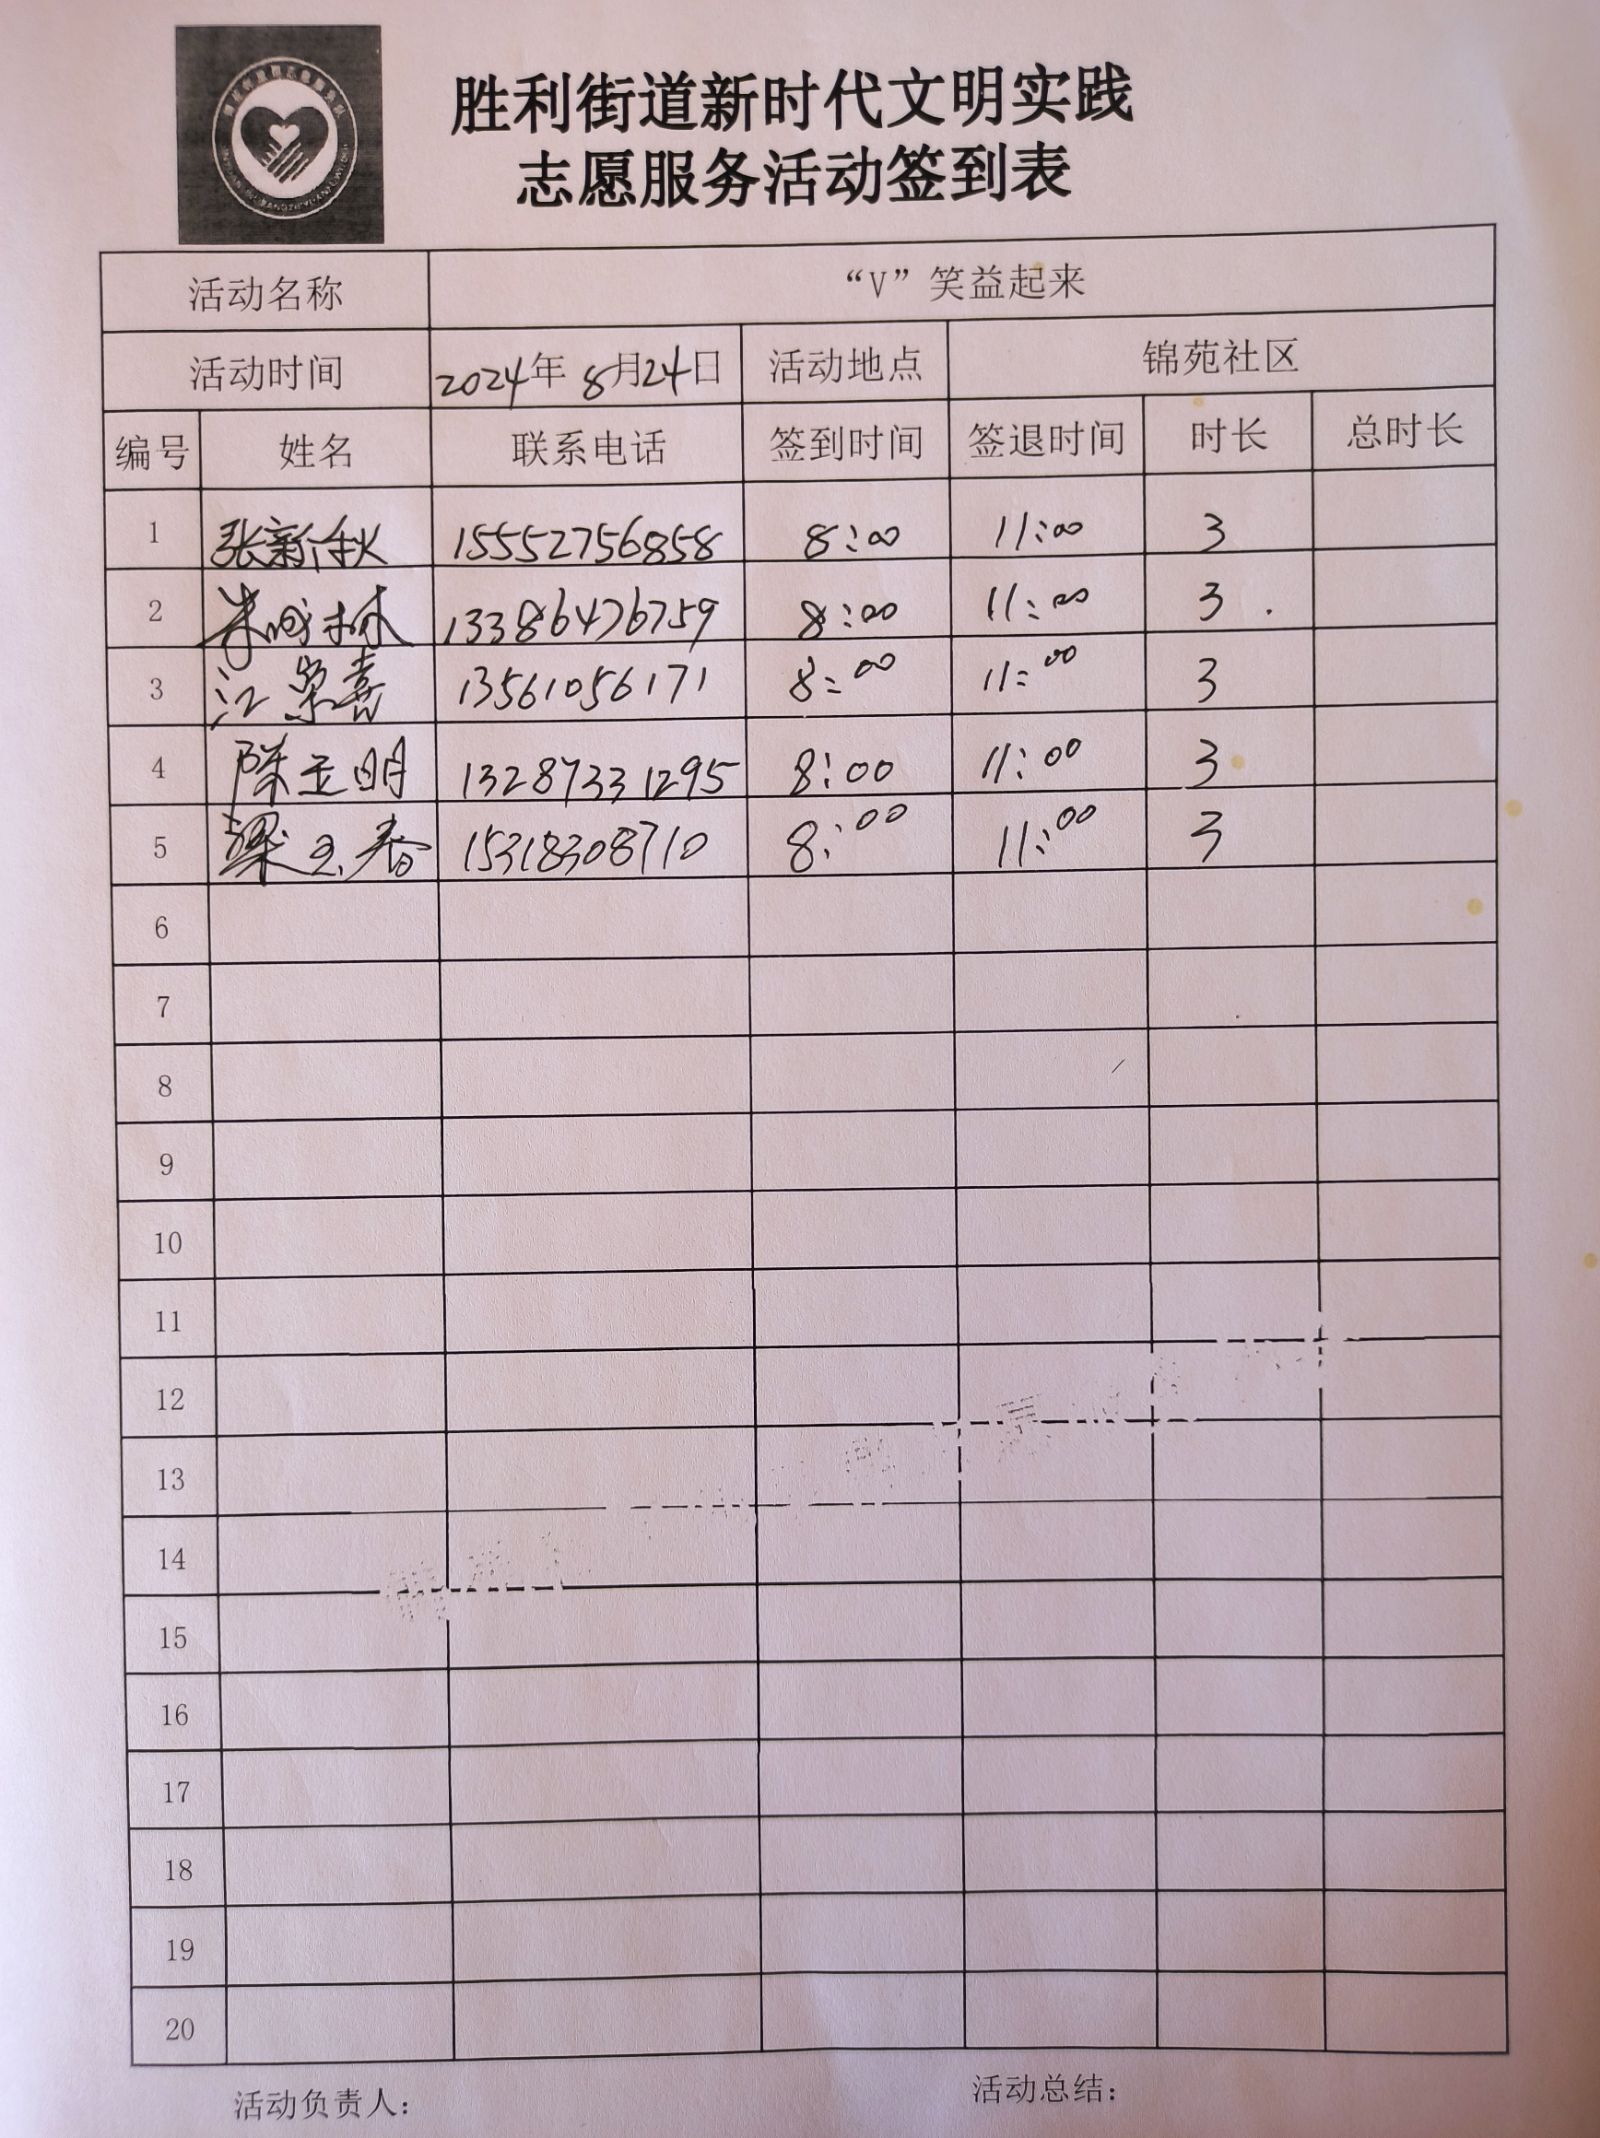 胜利街道新时代文明实践
志愿服务活动签到表
活动名称 “V”笑益起来
活动时间 2024年 8月24日 活动地点 锦苑社区
编号 姓名 联系电话 签到时间 签退时间 时长 总时长
1 张新秋 15552756858 8:00 11:00 3
2 朱成林 13386476759 8:00 11:00 3
3 江荣喜 13561056171 8:00 11:00 3
4 陈玉明 13287331295 8:00 11:00 3
5 梁玉春 15318308710 8:00 11:00 3
6
7
8
9
10
11
12
13
14
15
16
17
18
19
20
活动负责人: 活动总结: